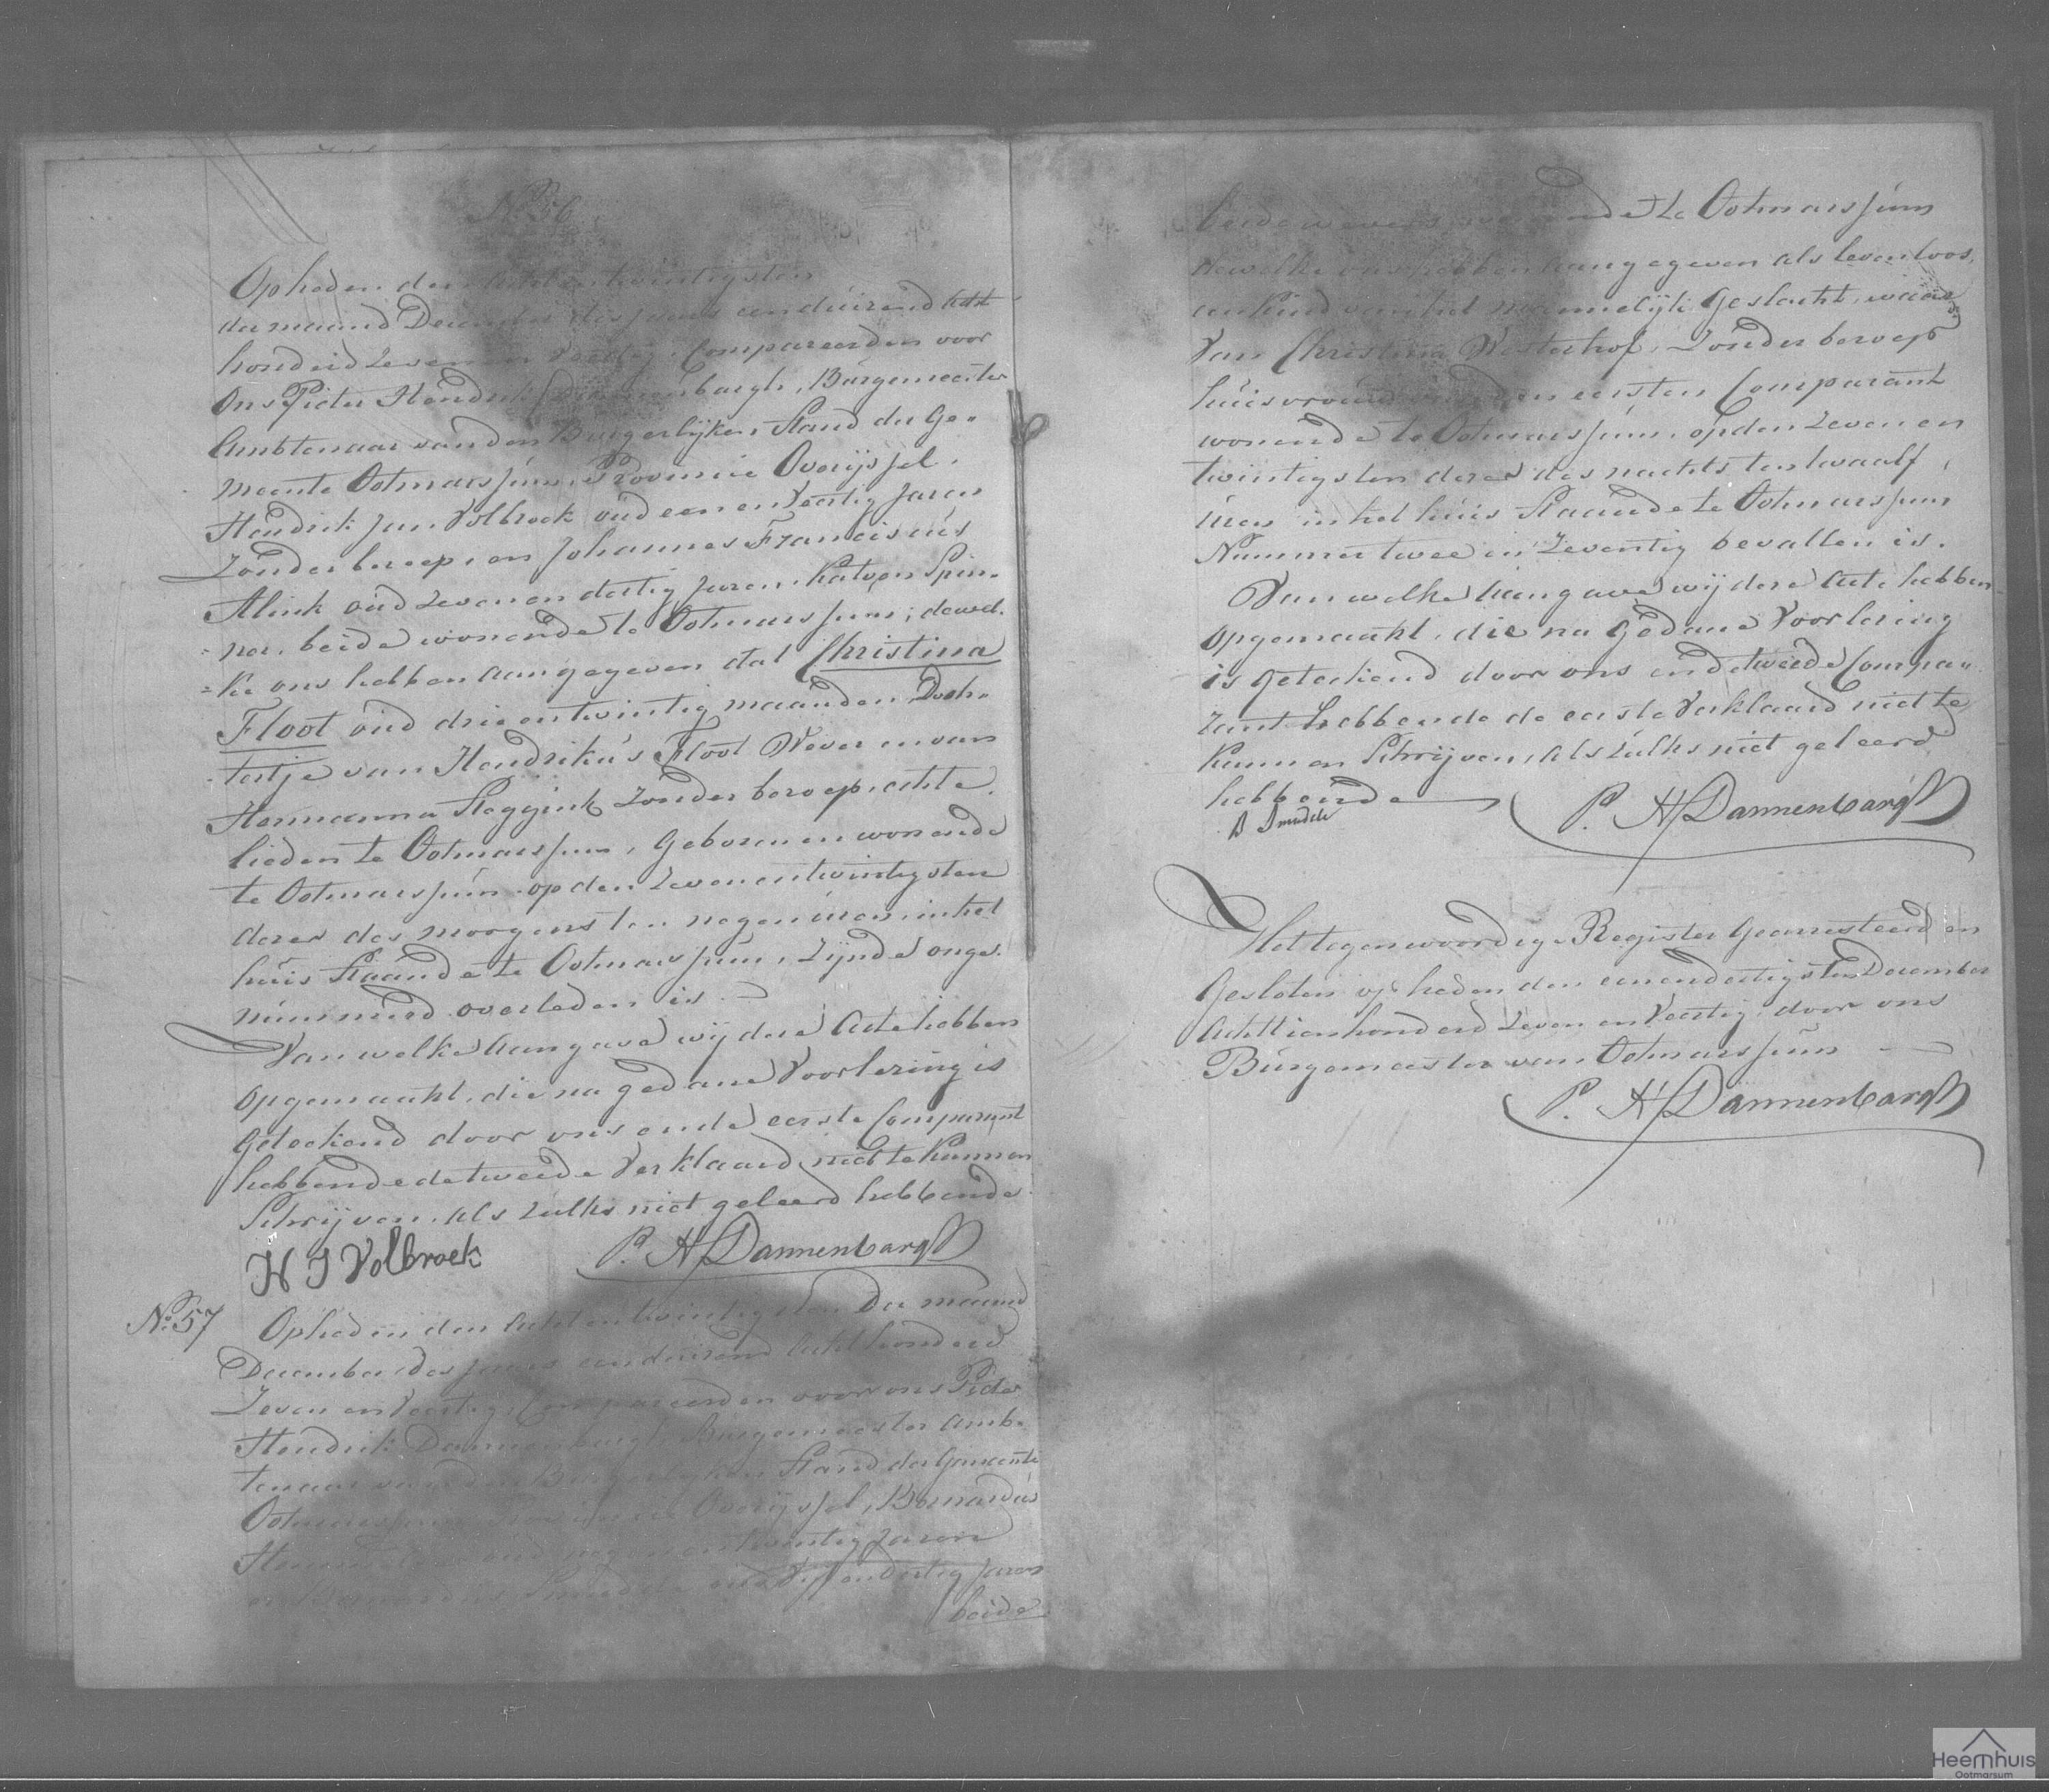 No 56
Op heden den acht en twintigsten
der maand December des jaars een duizend acht
honderd zeven en veertig, Compareerden voor
Ons Pieter Hendrik Dannenbargh, Burgemeester
Ambtenaar van den Burgerlijken Stand der Ge„
meente Ootmarssum, Provincie Overijssel,
Hendrik Jan Volbroek oud een en veertig Jaren
Zonder beroep, en Johannes Franciscus
Alink oud zeven en dertig Jaren, Katoen Spin„
ner, beide wonende te Ootmarssum, dewel„
„ke ons hebben aangegeven dat Christina
Floot oud drie en twintig maanden Doch„
„tertje van Hendrikus Floot Wever en van
Hermanna Steggink zonder beroep, echte
lieden te Ootmarssum, geboren en wonende
te Ootmarssum op den zeven en twintigsten
dezer des morgens ten negen uren, in het
huis staande te Ootmarssum, zijnde onge„
nummerd overleden is.
Van welke aangave wij deze Acte hebben
opgemaakt, die na gedane Voorlezing is
geteekend door ons en de eerste Comparant
hebbende de tweede verklaard niet te kunnen
Schrijven, als zulks niet geleerd hebbende.
H J Volbroek P. H. Dannenbargh
No 57
Op heden den acht en twintigsten der maand
December des jaars een duizend acht honderd
Zeven en Veertig, Compareerden voor ons Pieter
Hendrik Dannenbargh, Burgemeester Amb„
tenaar van den Burgerlijken Stand der Gemeente
Ootmarssum Provincie Overijssel, Bernardus
oud negen en twintig Jaren
en Bernardus Smudde oud Vijf en dertig Jaren
beide
beide wevers, wonende te Ootmarssum
dewelke ons hebben aangegeven als levenloos,
een kind van het mannelijk Geslacht, waar
Van Christina Westerhof, Zonder beroep
huisvrouw van den eersten Comparant
wonende te Ootmarssum, op den Zeven en
twintigsten dezer des nachts ten twaalf
uren in het huis Staande te Ootmarssum
Nummer twee en Zeventig bevallen is.
Van welke aangave wij deze Acte hebben
opgemaakt, die na gedane Voorlezing
is geteekend door ons en de tweede Compa„
rant hebbende de eerste Verklaard niet te
kunnen Schrijven, als zulks niet geleerd
hebbende P. H. Dannenbargh
B Smudde
Het tegenwoordige Register Gearresteerd en
Gesloten op heden den een en dertigsten December
Achttienhonderd Zeven en Veertig door ons
Burgemeester van Ootmarssum
P. H. Dannenbargh
Heemhuis
Ootmarsum